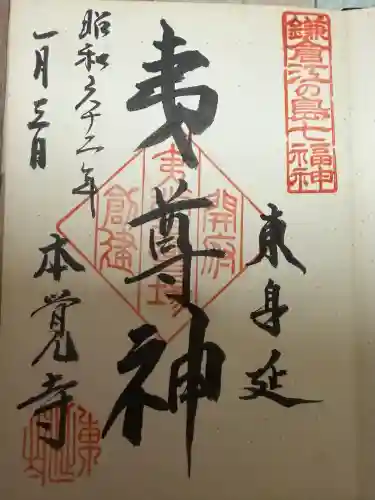 鎌倉江の島七福神
東身延
夷尊神
開府
創建
本覚寺
昭和六十二年
一月三日